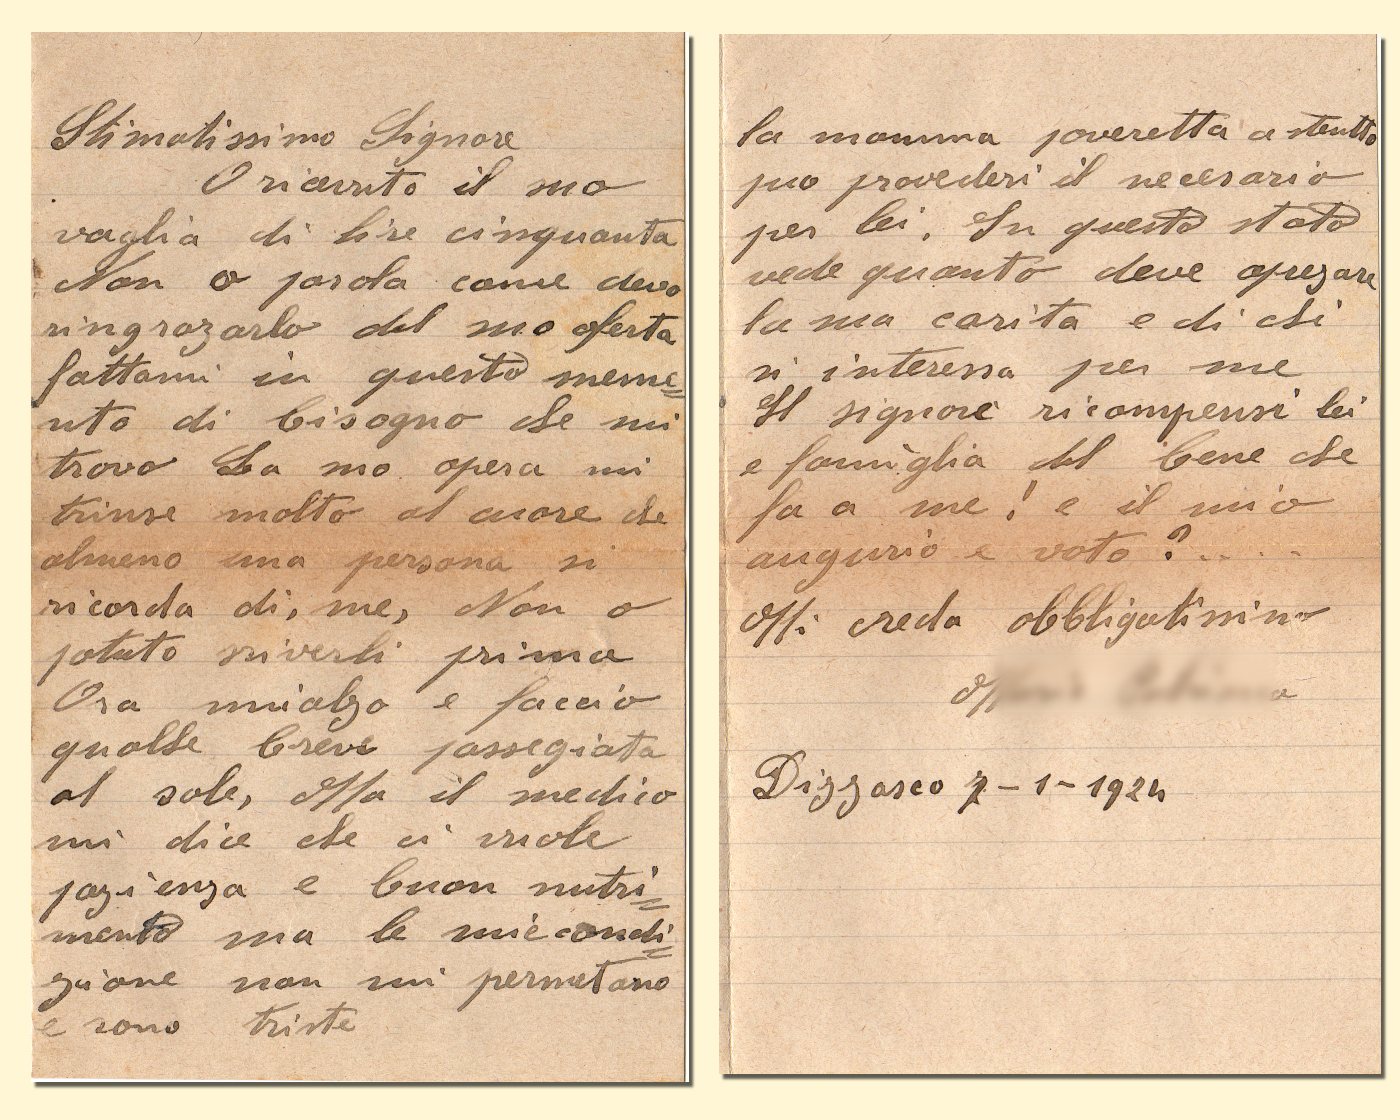 Stimatissimo Signore
O riceuto il suo
vaglia di lire cinquanta
Non o parola come devo
ringrazarlo del suo oferta
fattami in questo mome=
nto di bisogno che mi
trovo La suo opera mi
trinse molto al cuore che
almeno una persona si
ricorda di, me, Non o
potuto scriverli prima
Ora mialzo e faccio
qualche breve passegiata
al sole, Ma il medico
mi dice che ci vuole
pazienza e buon nutri=
mento ma le mie condi=
zione non mi permetano
e sono triste
la mamma poveretta a stentto
puo provederi il necesario
per lei, In questo stato
vede quanto deve aprezare
la sua carita e di chi
si interessa per me
Il signore ricompensi lei
e famiglia del bene che
fa a me! e il mio
augurio e voto?....
Mi creda obbligatissimo
Dizzasco 7-1-1924